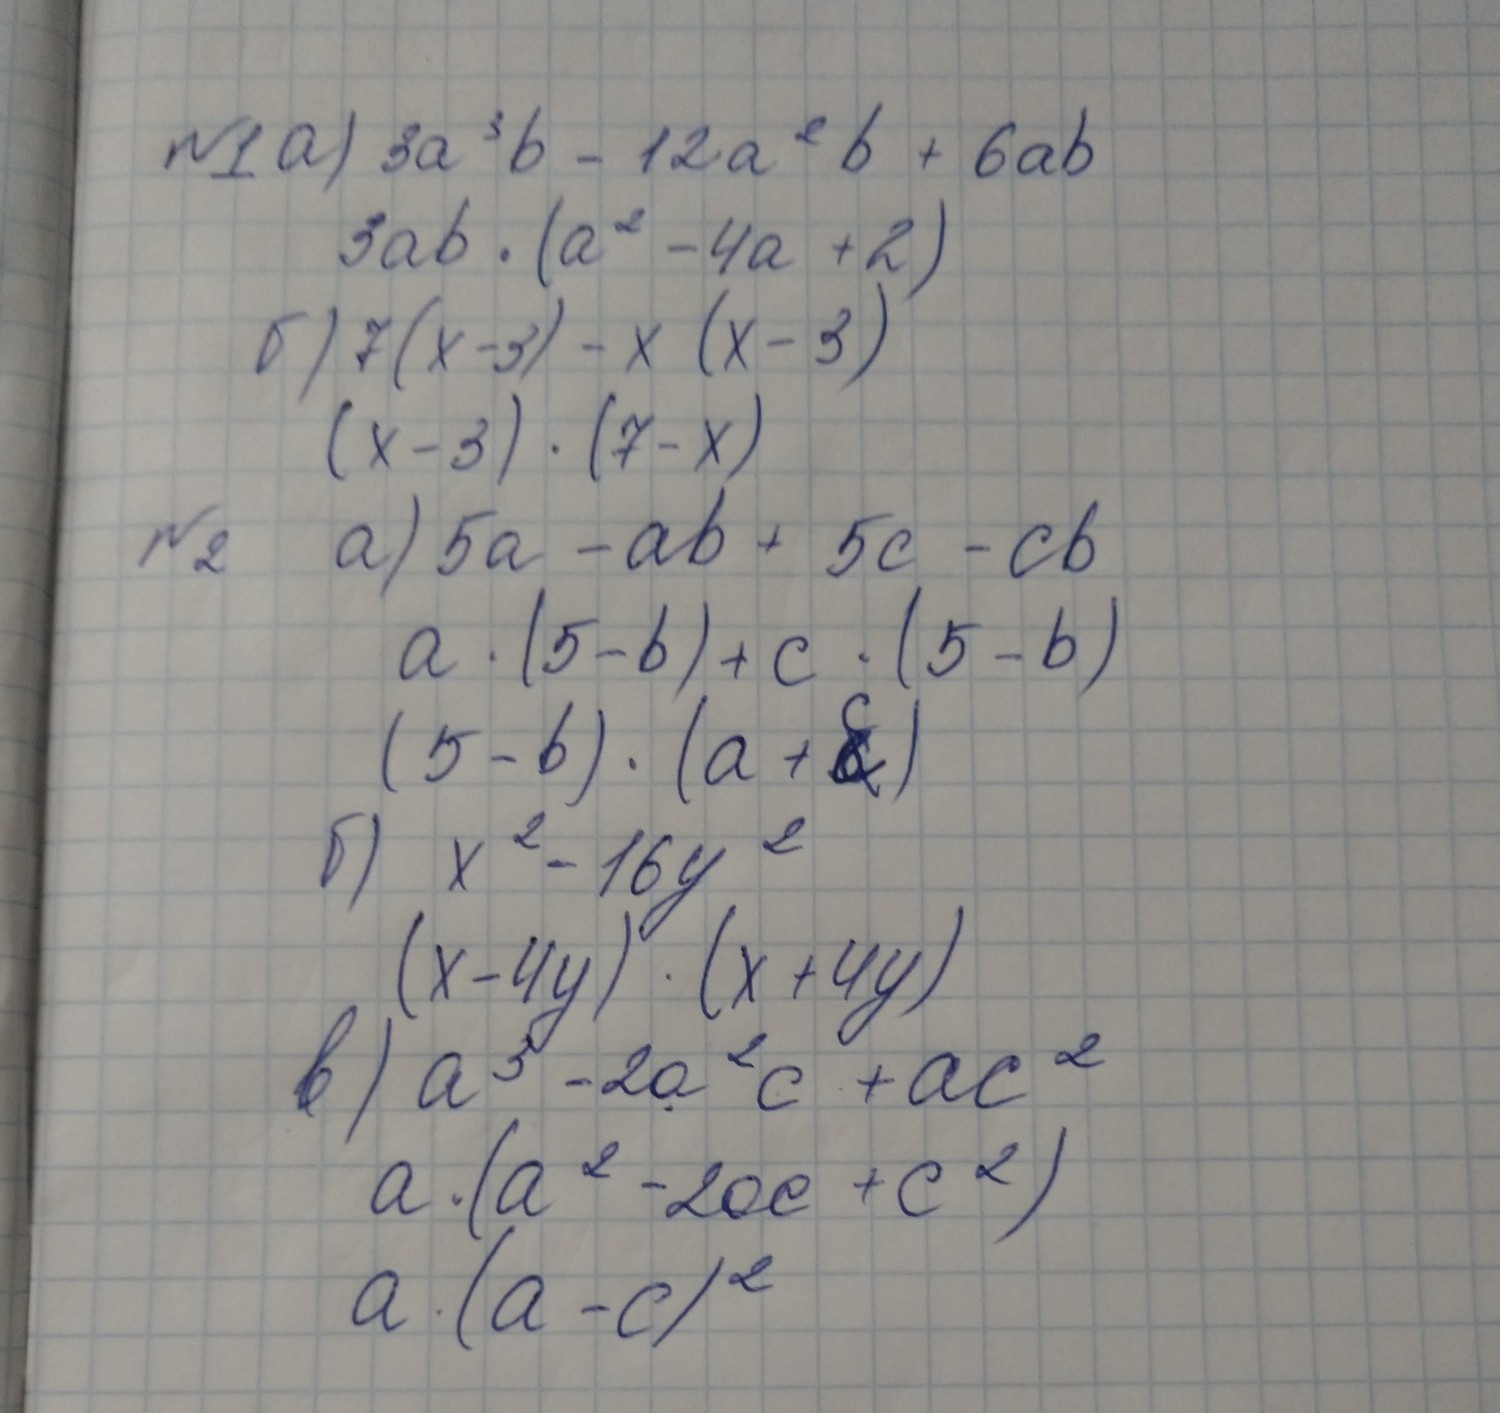 №1 а) 3a³b - 12a²b + 6ab
3ab · (a² - 4a + 2)
б) 7(x-3) - x (x - 3)
(x - 3) · (7 - x)
№2 а) 5a - ab + 5c - cb
a · (5 - b) + c · (5 - b)
(5 - b) · (a + c)
б) x² - 16y²
(x - 4y) · (x + 4y)
в) a³ - 2a²c + ac²
a · (a² - 2ac + c²)
a · (a - c)²